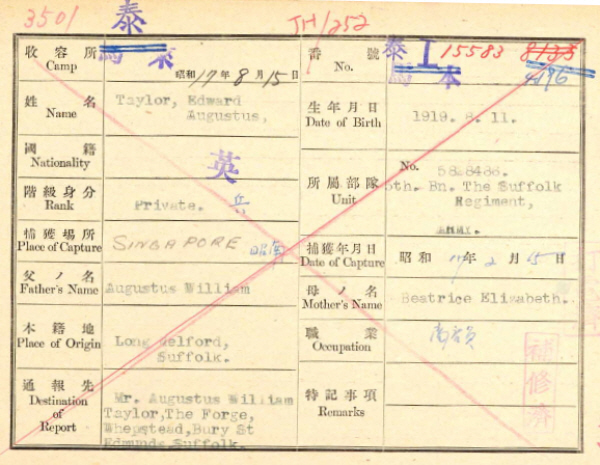 3501 泰 TH/252
收容所
Camp
昭和17年8月15日
番號
No.
泰 I 15583
4196
姓名
Name
Taylor, Edward
Augustus,
生年月日
Date of Birth
1919. 8. 11.
國籍
Nationality
英
所屬部隊
Unit
No.
5th. Bn. The Suffolk
Regiment,
階級身分
Rank
Private. 兵
捕獲場所
Place of Capture
SINGAPORE 昭南
捕獲年月日
Date of Capture
昭和 17年 2月 15日
父ノ名
Father's Name
Augustus William
母ノ名
Mother's Name
Beatrice Elizabeth.
本籍地
Place of Origin
Long Melford,
Suffolk.
職業
Occupation
通報先
Destination
of
Report
Mr. Augustus William
Taylor,The Forge,
Whepstead,Bury St
Edmunds,Suffolk.
特記事項
Remarks
補修濟